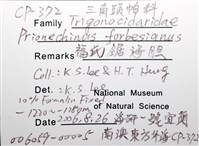 CP-372 三角頭帕科
Family Trigonocidaridae
Prionechinus forbesianus
Remarks 福氏鋸海膽
Coll.: K.S. Lee & H.T. Hung
Det.: K.S. Lee National Museum
10% Formalin Fixed of Natural Science
2006.8.26 海研一號宜蘭
006059-00005 南澳東方外海CP-372